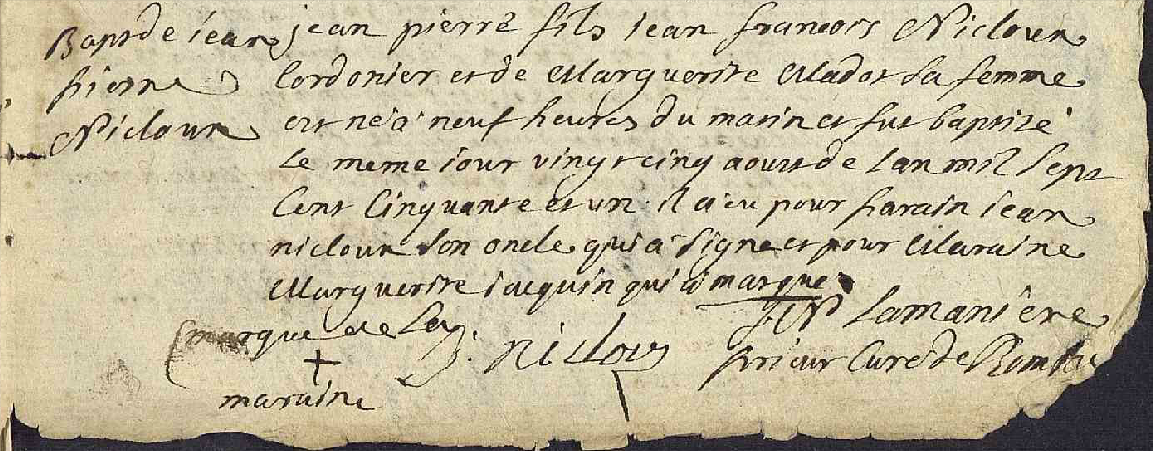 Bapt de jean
pierre
Nicloux
jean pierre fils jean francois Nicloux
Cordonier et de Marguerite Mador sa femme
est né a neuf heures du matin et fut baptizé
le meme iour vingt cinq aoust de lan mil sept
Cent Cinquante et un. il a eu pour parain jean
nicloux son oncle qui a signe et pour Maraine
Marguerite jacquin qui a marque
marque de la
+
maraine
j. niclous
Lamaniere
prieur Curé de